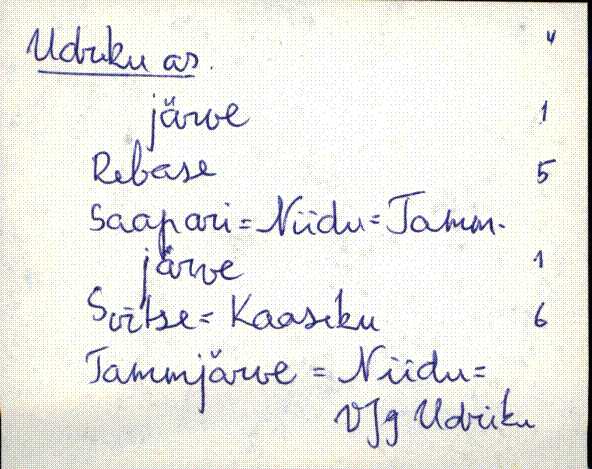 Udriku as. 4
järve 1
Rebase 5
Saapari = Niidu = Tamm-
järve 1
Sõitse = Kaasiku 6
Tammjärve = Niidu =
Udriku